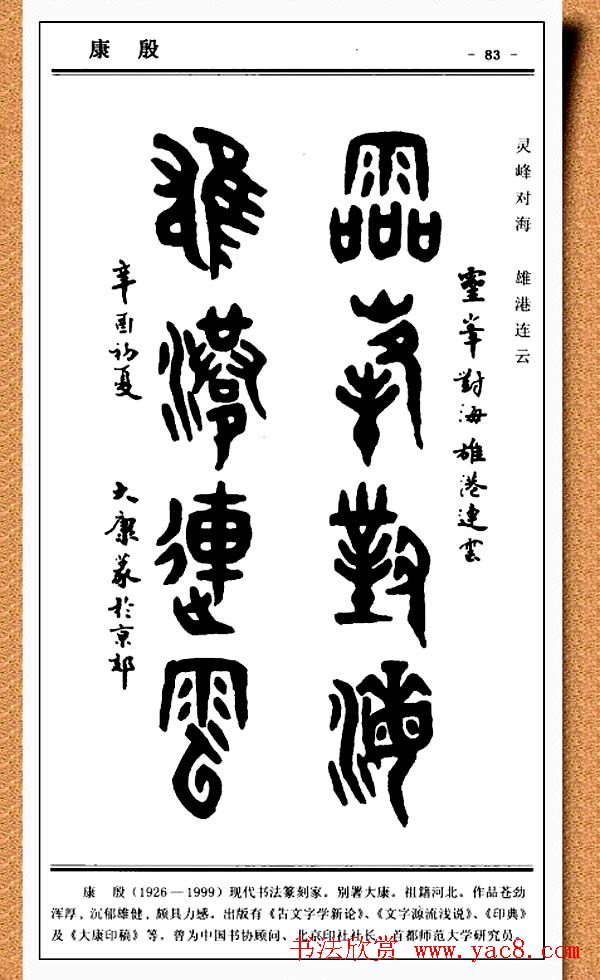 康 殷
- 83 -
灵峰对海 雄港连云
靈峯對海雄港連雲
霝峯對海
雄港連雲
辛酉初夏 大康篆於京郊
康 殷（1926—1999）现代书法篆刻家。别署大康。祖籍河北。作品苍劲
浑厚，沉郁雄健，颇具力感。出版有《古文字学新论》、《文字源流浅说》、《印典》
及《大康印稿》等。曾为中国书协顾问、北京印社社长、首都师范大学研究员。
书法欣赏 www.yac8.com